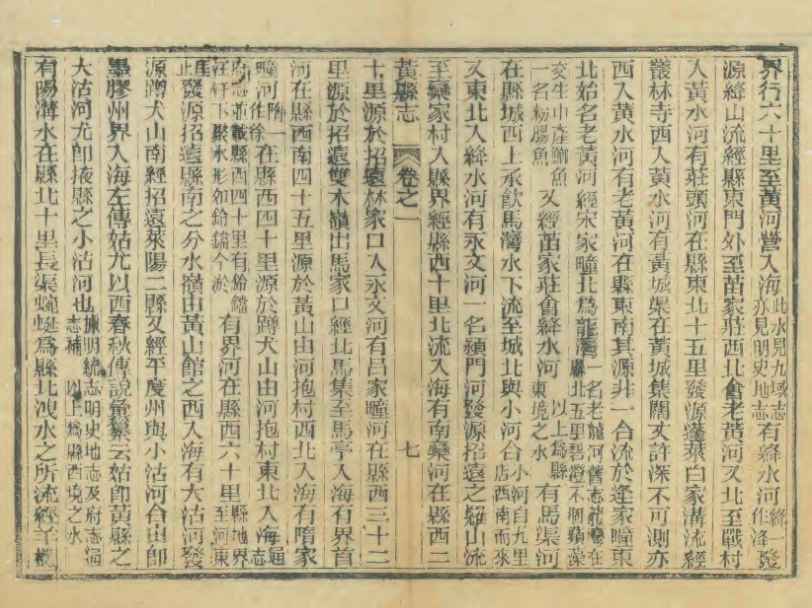 界行六十里至黃河營入海此水見九域志亦見明史地志有絳水河絳一作洚發
源絳山流經縣東門外至苗家莊西北會老黃河又北至戰村
入黃水河有莊頭河在縣東北十五里發源蓬萊白家溝流經
叢林寺西入黃水河有黃城渠在黃城集闊丈許深不可測亦
西入黃水河有老黃河在縣東南其源非一合流於逄家疃東
北始名老黃河經宋家疃北爲龍灣一名老龍河舊志龍灣在縣北五里碧澄不涸蘋藻
交生中產鯽魚一名粉腸魚又經苗家莊會絳水河以上爲縣東境之水有馬渠河
在縣城西上承飮馬灣水下流至城北與小河合小河自九里店西南而來
又東北入絳水河有永文河一名門河發源招遠之羅山流
至欒家村入縣界經縣西十里北流入海有南欒河在縣西二
黃縣志 卷之一 七
十里源於招遠林家口入永文河有呂家疃河在縣西三十二
里源於招遠雙木嶺出馬家口經北馬集至馬亭入海有界首
河在縣西南四十五里源於黃山由河抱村西北入海有隋家
疃河隋一作徐在縣西四十里源於蹲犬山由河抱村東北入海通志
府志並載縣西四十里有鈴鐺汪下聚水形如鈴鐺今淤有界河在縣西六十里縣地界至河東
里此發源招遠縣南之分水嶺由黃山館之西入海有大沽河發
源蹲犬山南經招遠萊陽二縣又經平度州與小沽河合由卽
墨膠州界入海左傳姑尤以西春秋傳說彙纂云姑卽黃縣之
大沽河尤卽掖縣之小沽河也據明統志明史地志及府志通志補以上爲縣西境之水
有陽溝水在縣北十里長渠蜿蜒爲縣北洩水之所流經羊欄